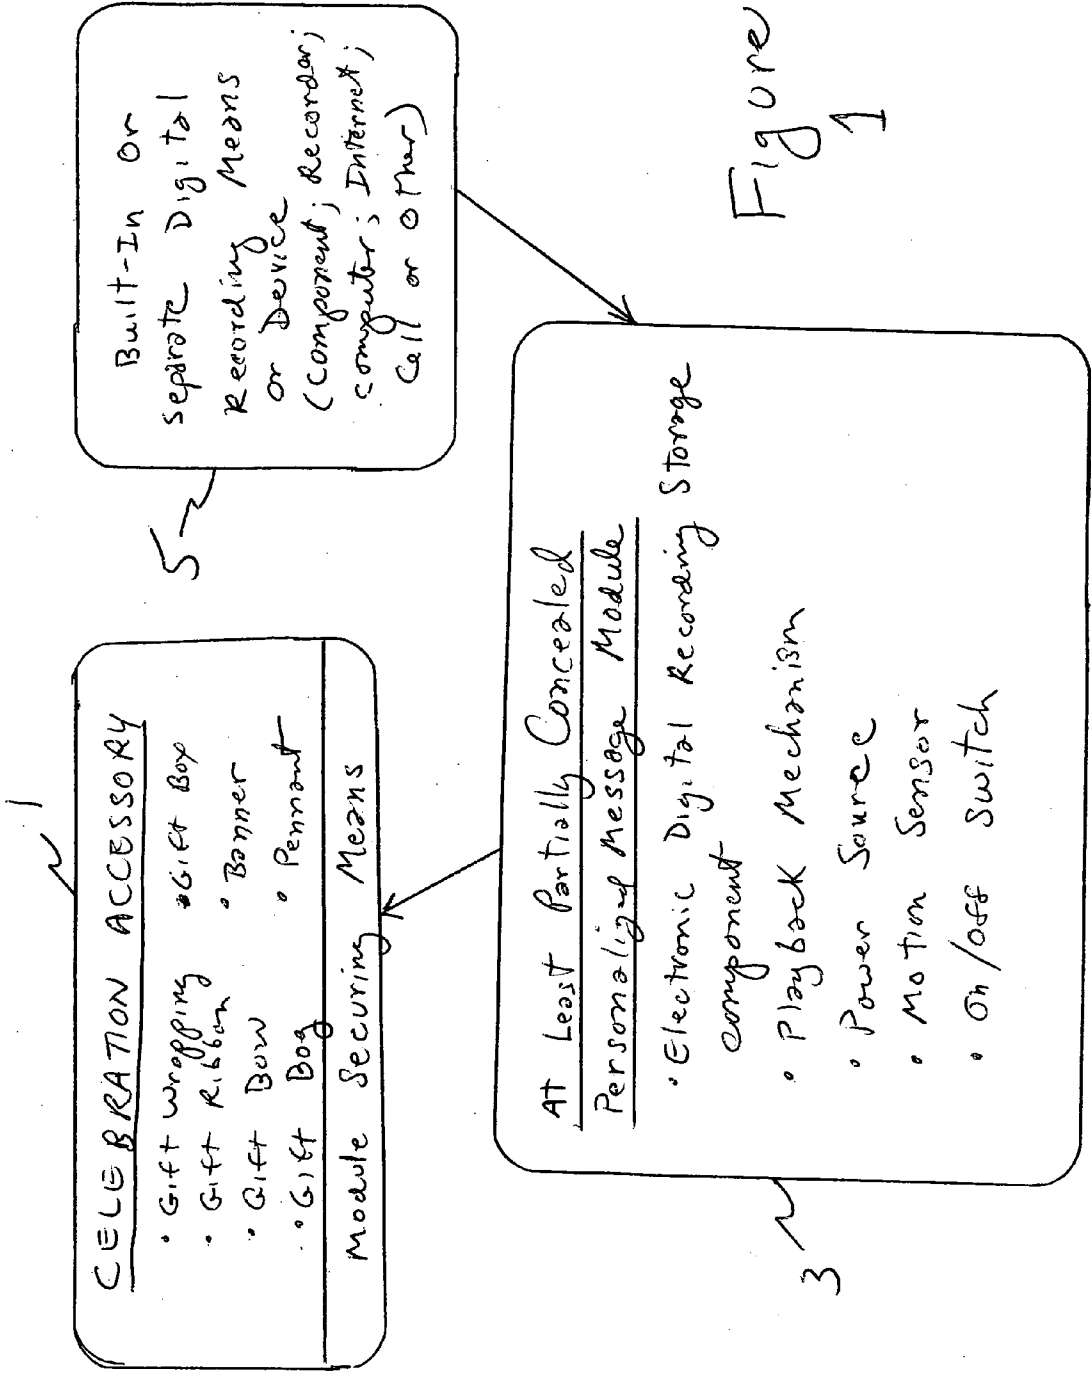 1
CELEBRATION ACCESSORY
• Gift Wrapping • Gift Box
• Gift Ribbon • Banner
• Gift Bow • Pennant
• Gift Bag
Module Securing Means
5
Built-In or
separate Digital
Recording Means
or Device
(component; Recorder;
computer; Internet;
Cell or other)
At Least Partially Concealed
Personalized Message Module
• Electronic Digital Recording Storage
component
• Playback Mechanism
• Power Source
• Motion Sensor
• On/off switch
3
Figure
1